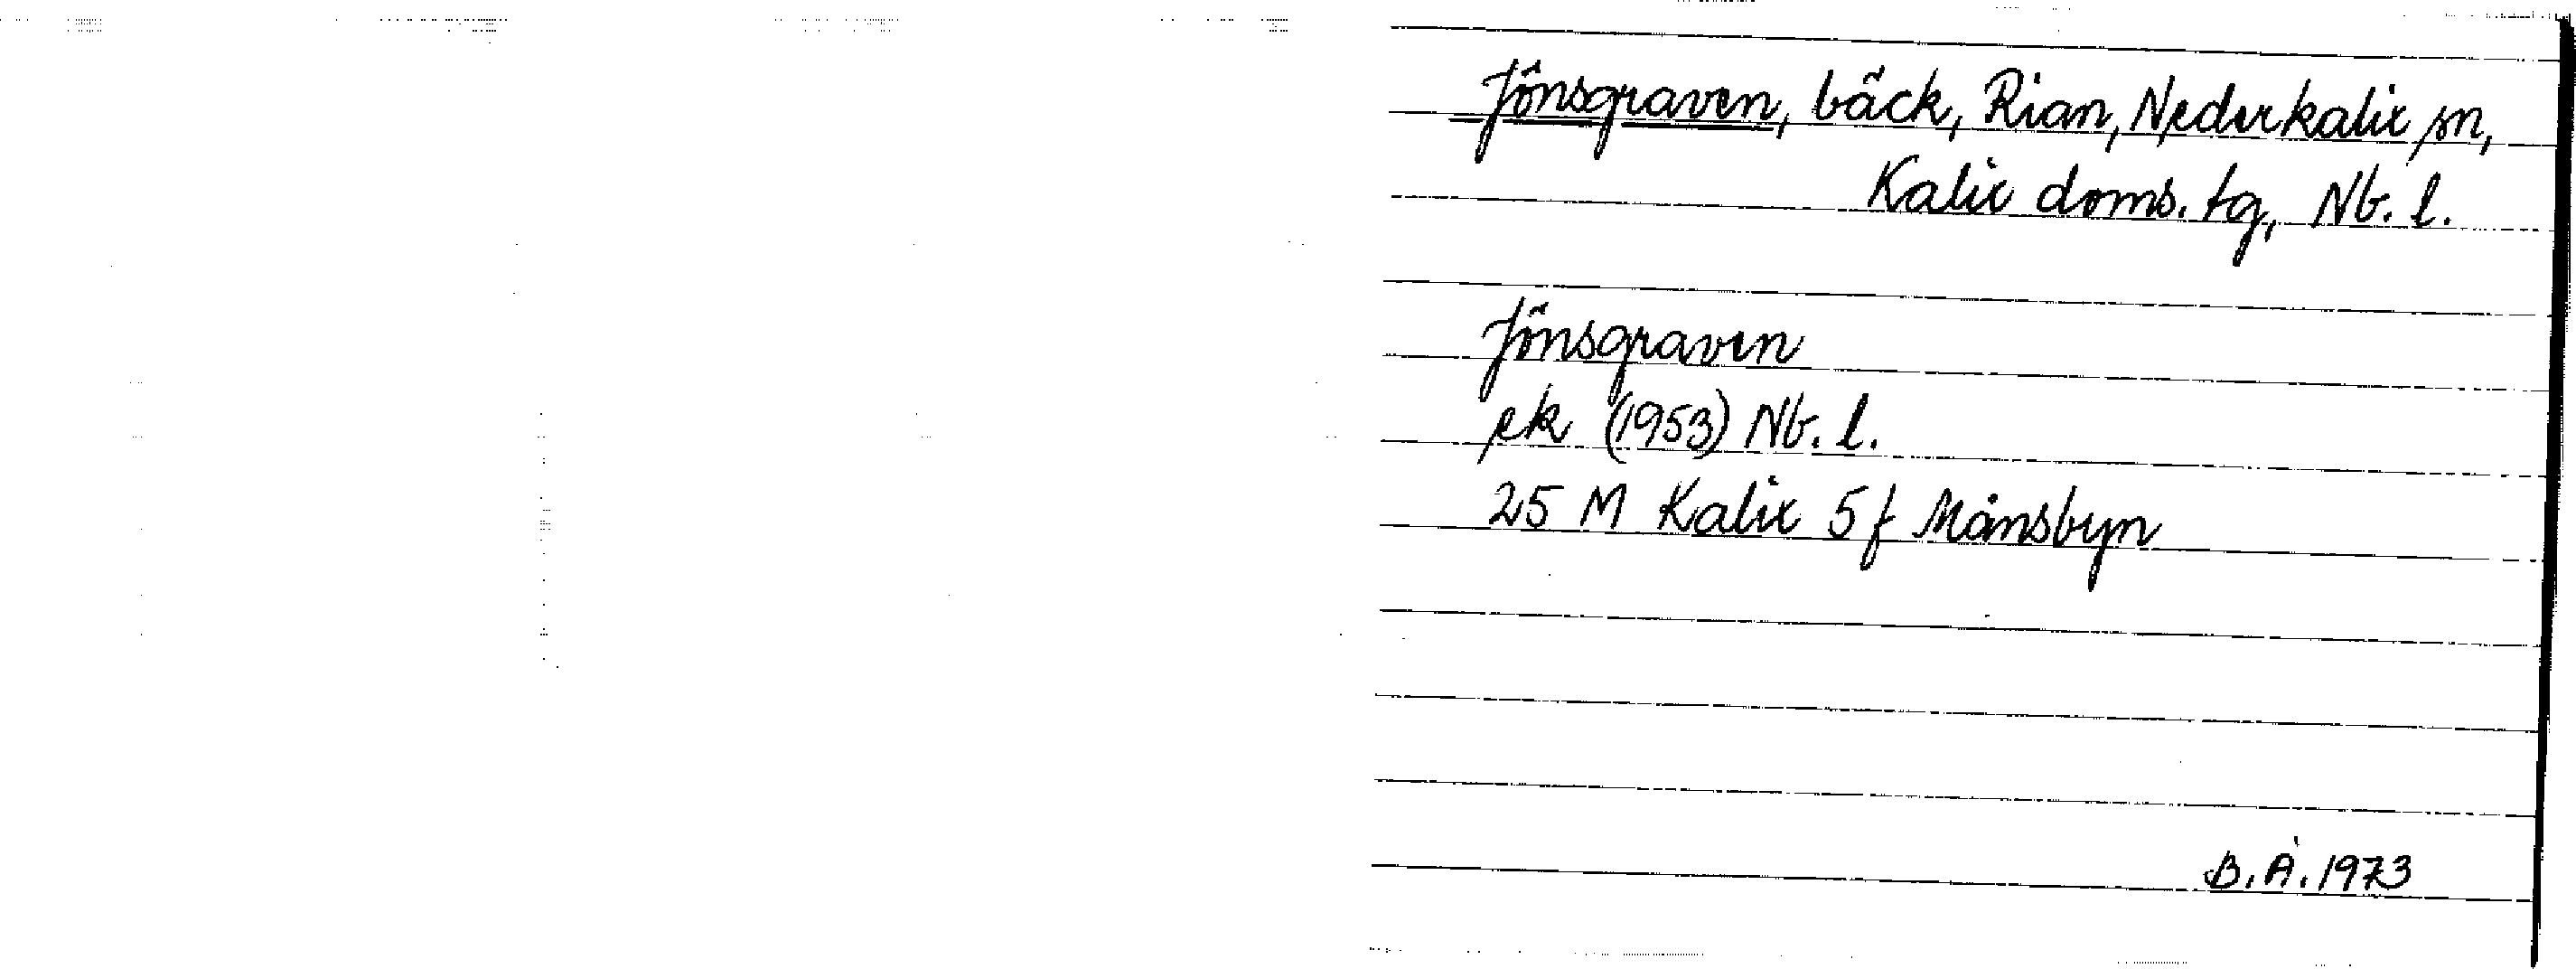 Jönsgraven, bäck, Rian, Nederkalix sn,
Kalix doms. tg, Nb. l.
Jönsgraven
ek (1953) Nb. l.
25 M Kalix 5f Månsbyn
B. Å. 1973